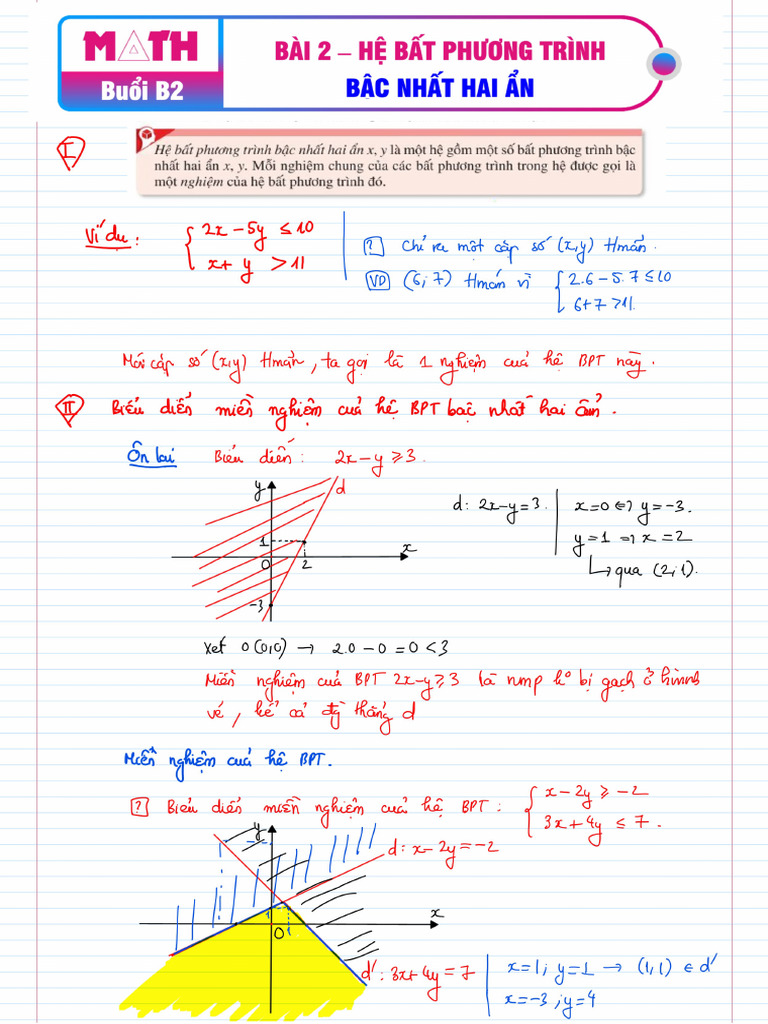 MATH
Buổi B2
BÀI 2 – HỆ BẤT PHƯƠNG TRÌNH
BẬC NHẤT HAI ẨN
I
Hệ bất phương trình bậc nhất hai ẩn x, y là một hệ gồm một số bất phương trình bậc
nhất hai ẩn x, y. Mỗi nghiệm chung của các bất phương trình trong hệ được gọi là
một nghiệm của hệ bất phương trình đó.
Ví dụ: { 2x – 5y ≤ 10
x + y > 11
? Chỉ ra một cặp số (x,y) tmãn.
VD (6; 7) tmãn vì { 2.6 – 5.7 ≤ 10
6+7 > 11.
Mỗi cặp số (x,y) tmãn, ta gọi là 1 nghiệm của hệ BPT này.
II Biểu diễn miền nghiệm của hệ BPT bậc nhất hai ẩn.
Ôn lại Biểu diễn: 2x – y ≥ 3.
y
d
1
x
0
2
-3
d: 2x – y = 3.
x = 0 ⇔ y = -3.
y = 1 ⇒ x = 2
↳ qua (2; 1).
Xét O(0,0) → 2.0 – 0 = 0 < 3
Miền nghiệm của BPT 2x – y ≥ 3 là nmp ko bị gạch ở hình
vẽ, kể cả đg thẳng d
Miền nghiệm của hệ BPT.
? Biểu diễn miền nghiệm của hệ BPT: { x – 2y ≥ -2
3x + 4y ≤ 7.
y
d: x – 2y = -2
x
1
0
1
d': 3x + 4y = 7
x = 1; y = 1 → (1,1) ∈ d'
x = -3; y = 4